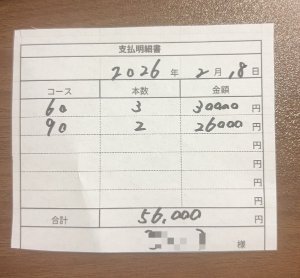 支払明細書
2026 年 2 月 18 日
コース 本数 金額
60 3 30000 円
90 2 26000 円
円
円
円
円
合計 56,000 円
様